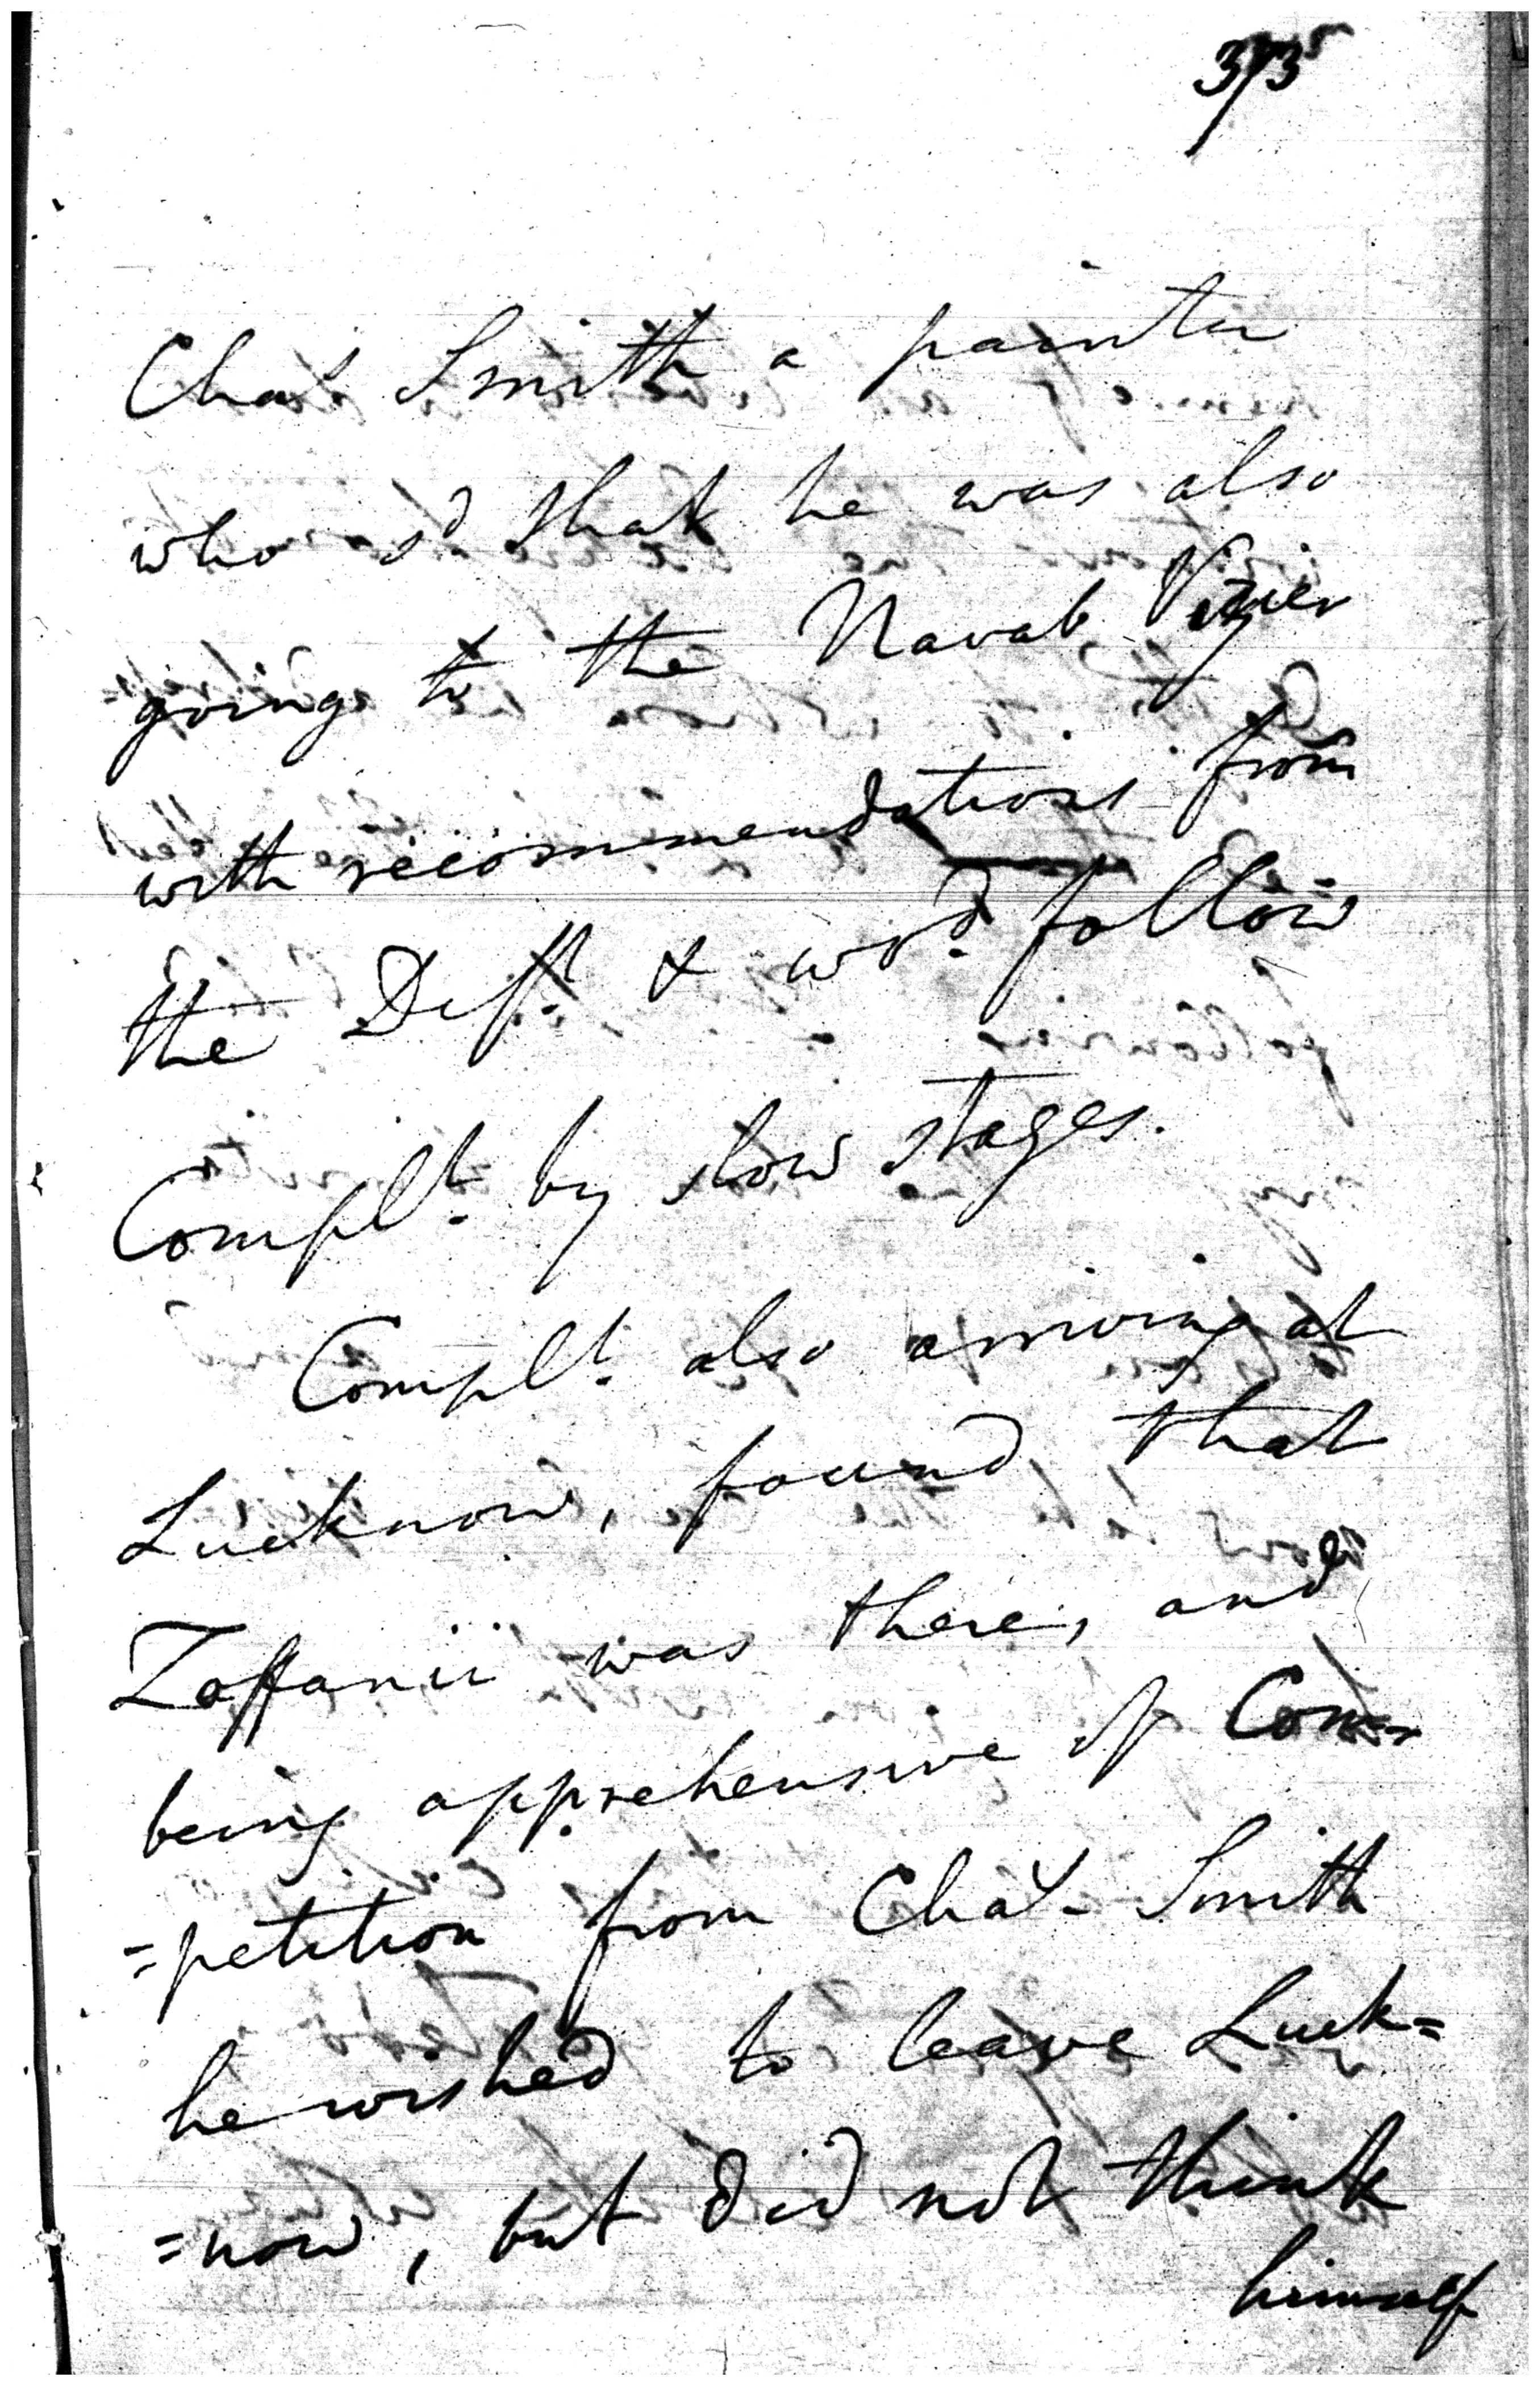 Chas Smith a painter
who sd that he was also
going to the Navab Vizier
with recommendations from
the Deft. & wod. follow
Complt. by slow stages.
Complt. also arriving at
Lucknow, found that
Zaffanii was there, and
being apprehensive of Com=
=petition from Chas. Smith
he wished to leave Luck=
=now, but did not think
himself